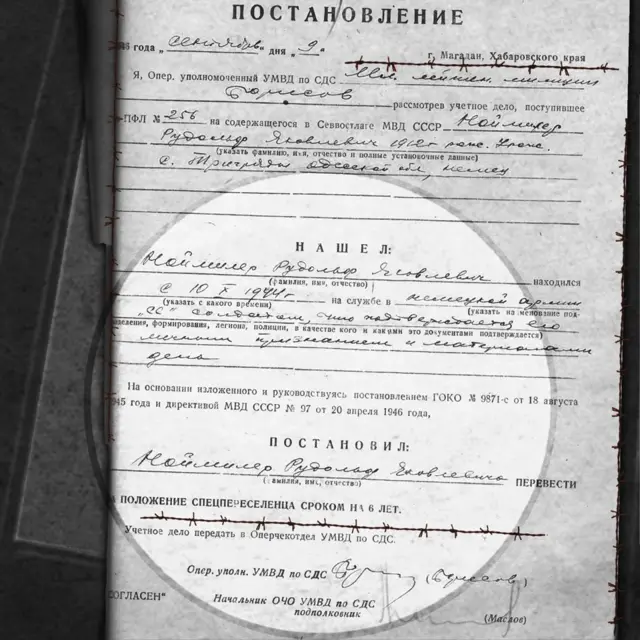 ПОСТАНОВЛЕНИЕ
года „ сентябрь “ дня „ 9 „
г. Магадан, Хабаровского края
Я, Опер. уполномоченный УМВД по СДС Мл. лейтен. милиции
Борисов
рассмотрев учетное дело, поступившее
-ПФЛ № 256 на содержащегося в Севвостлаге МВД СССР Наймилер
Рудольф Яковлевич 1912г рожд. Урож.
(указать фамилию, имя, отчество и полные установочные данные)
с. одесской обл, немец
НАШЕЛ:
Наймилер Рудольф Яковлевич находился
(фамилия, имя, отчество)
с 10 X 1944г на службе в немецкой армии
(указать с какого времени) (указать на именование под-
разделения, формирования, легиона, полиции, в качестве кого и какими это документами подтверждается)
„СС“ солдатом, что подтверждается его
личным признанием и материалами
дела
На основании изложенного и руководствуясь постановлением ГОКО № 9871-с от 18 августа
945 года и директивой МВД СССР № 97 от 20 апреля 1946 года,
ПОСТАНОВИЛ:
Наймилер Рудольф Яковлевича ПЕРЕВЕСТИ
(фамилия, имя, отчество)
НА ПОЛОЖЕНИЕ СПЕЦПЕРЕСЕЛЕНЦА СРОКОМ НА 6 ЛЕТ.
Учетное дело передать в Оперчекотдел УМВД по СДС.
Опер. уполн. УМВД по СДС (Борисов)
СОГЛАСЕН“ Начальник ОЧО УМВД по СДС
подполковник (Маслов)